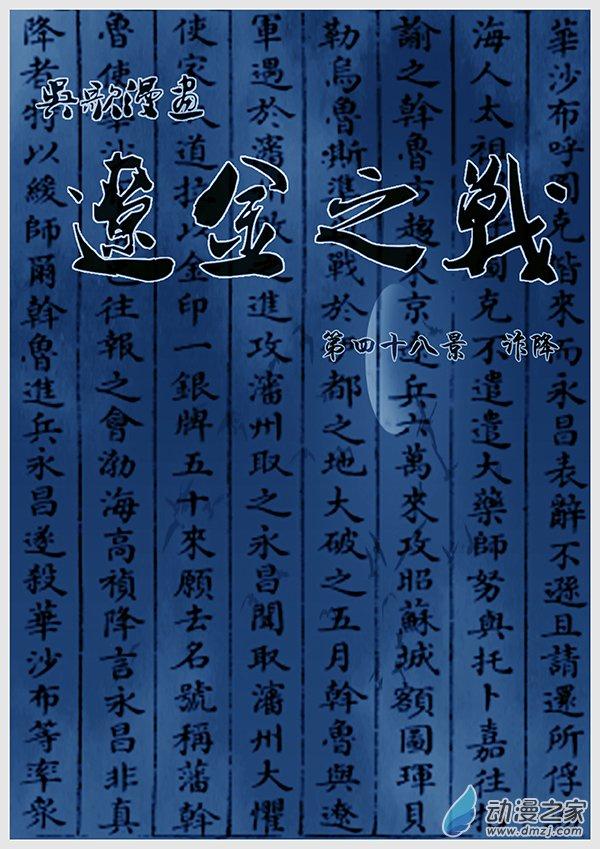 吳歌漫畫
遼金之戰
第四十八景 詐降
華沙布呼圖克皆來而永昌表辭不遜且請還所俘
海人太祖 胡克不遣遣大藥師努與托卜嘉往
諭之斡魯方趨東京遼兵六萬來攻昭蘇城額圖琿貝
勒烏魯斯準 戰於 都之地大破之五月斡魯與遼
軍遇於瀋 敗 進攻瀋州取之永昌聞取瀋州大懼
使家 道 以金印一銀牌五十來願去名號稱藩斡
魯使 沙 往報之會渤海高禎降言永昌非真
降者特以緩師爾斡魯進兵永昌遂殺華沙布等率眾
动漫之家
www.dmzj.com